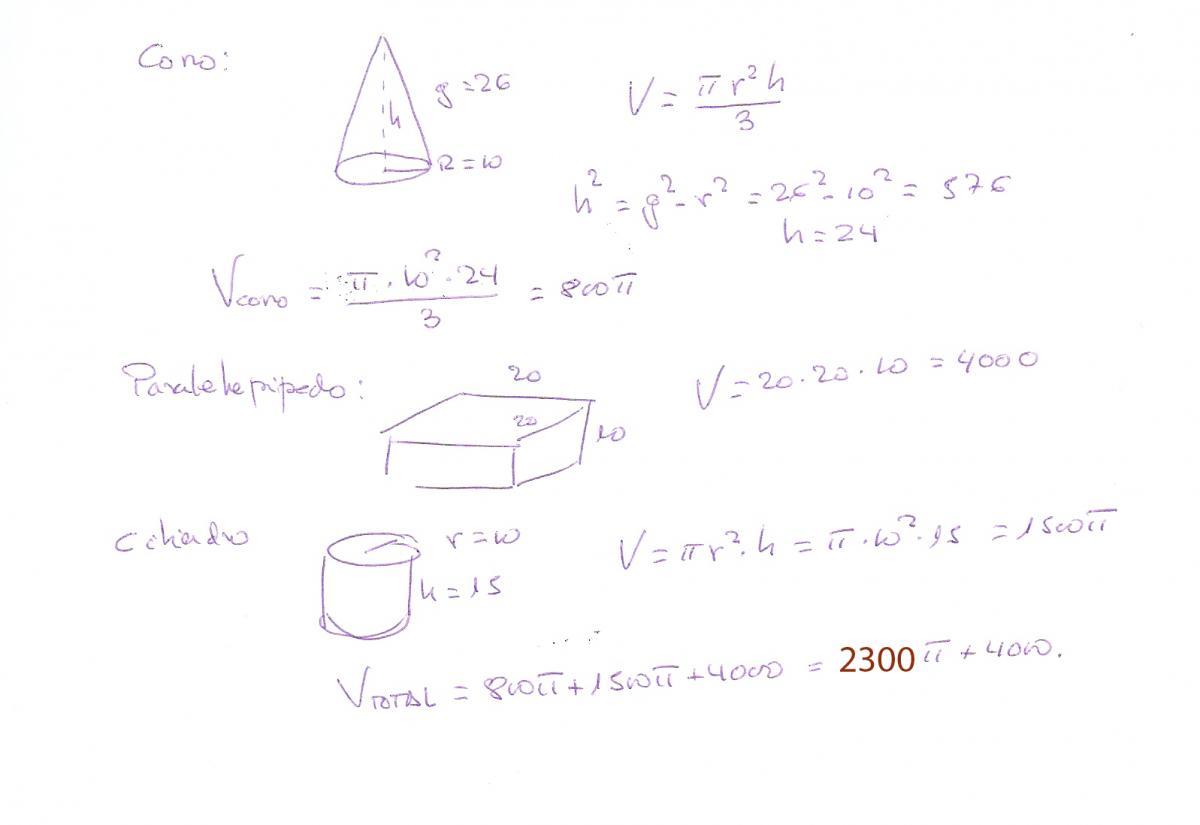 Cono:
g = 26
h
R = 10
V = π r² h / 3
h² = g² - r² = 26² - 10² = 576
h = 24
Vcono = π · 10² · 24 / 3 = 800π
Paralelepípedo:
20
20
10
V = 20 · 20 · 10 = 4000
Cilindro
r = 10
h = 15
V = π r² · h = π · 10² · 15 = 1500π
VTOTAL = 800π + 1500π + 4000 = 2300 π + 4000.